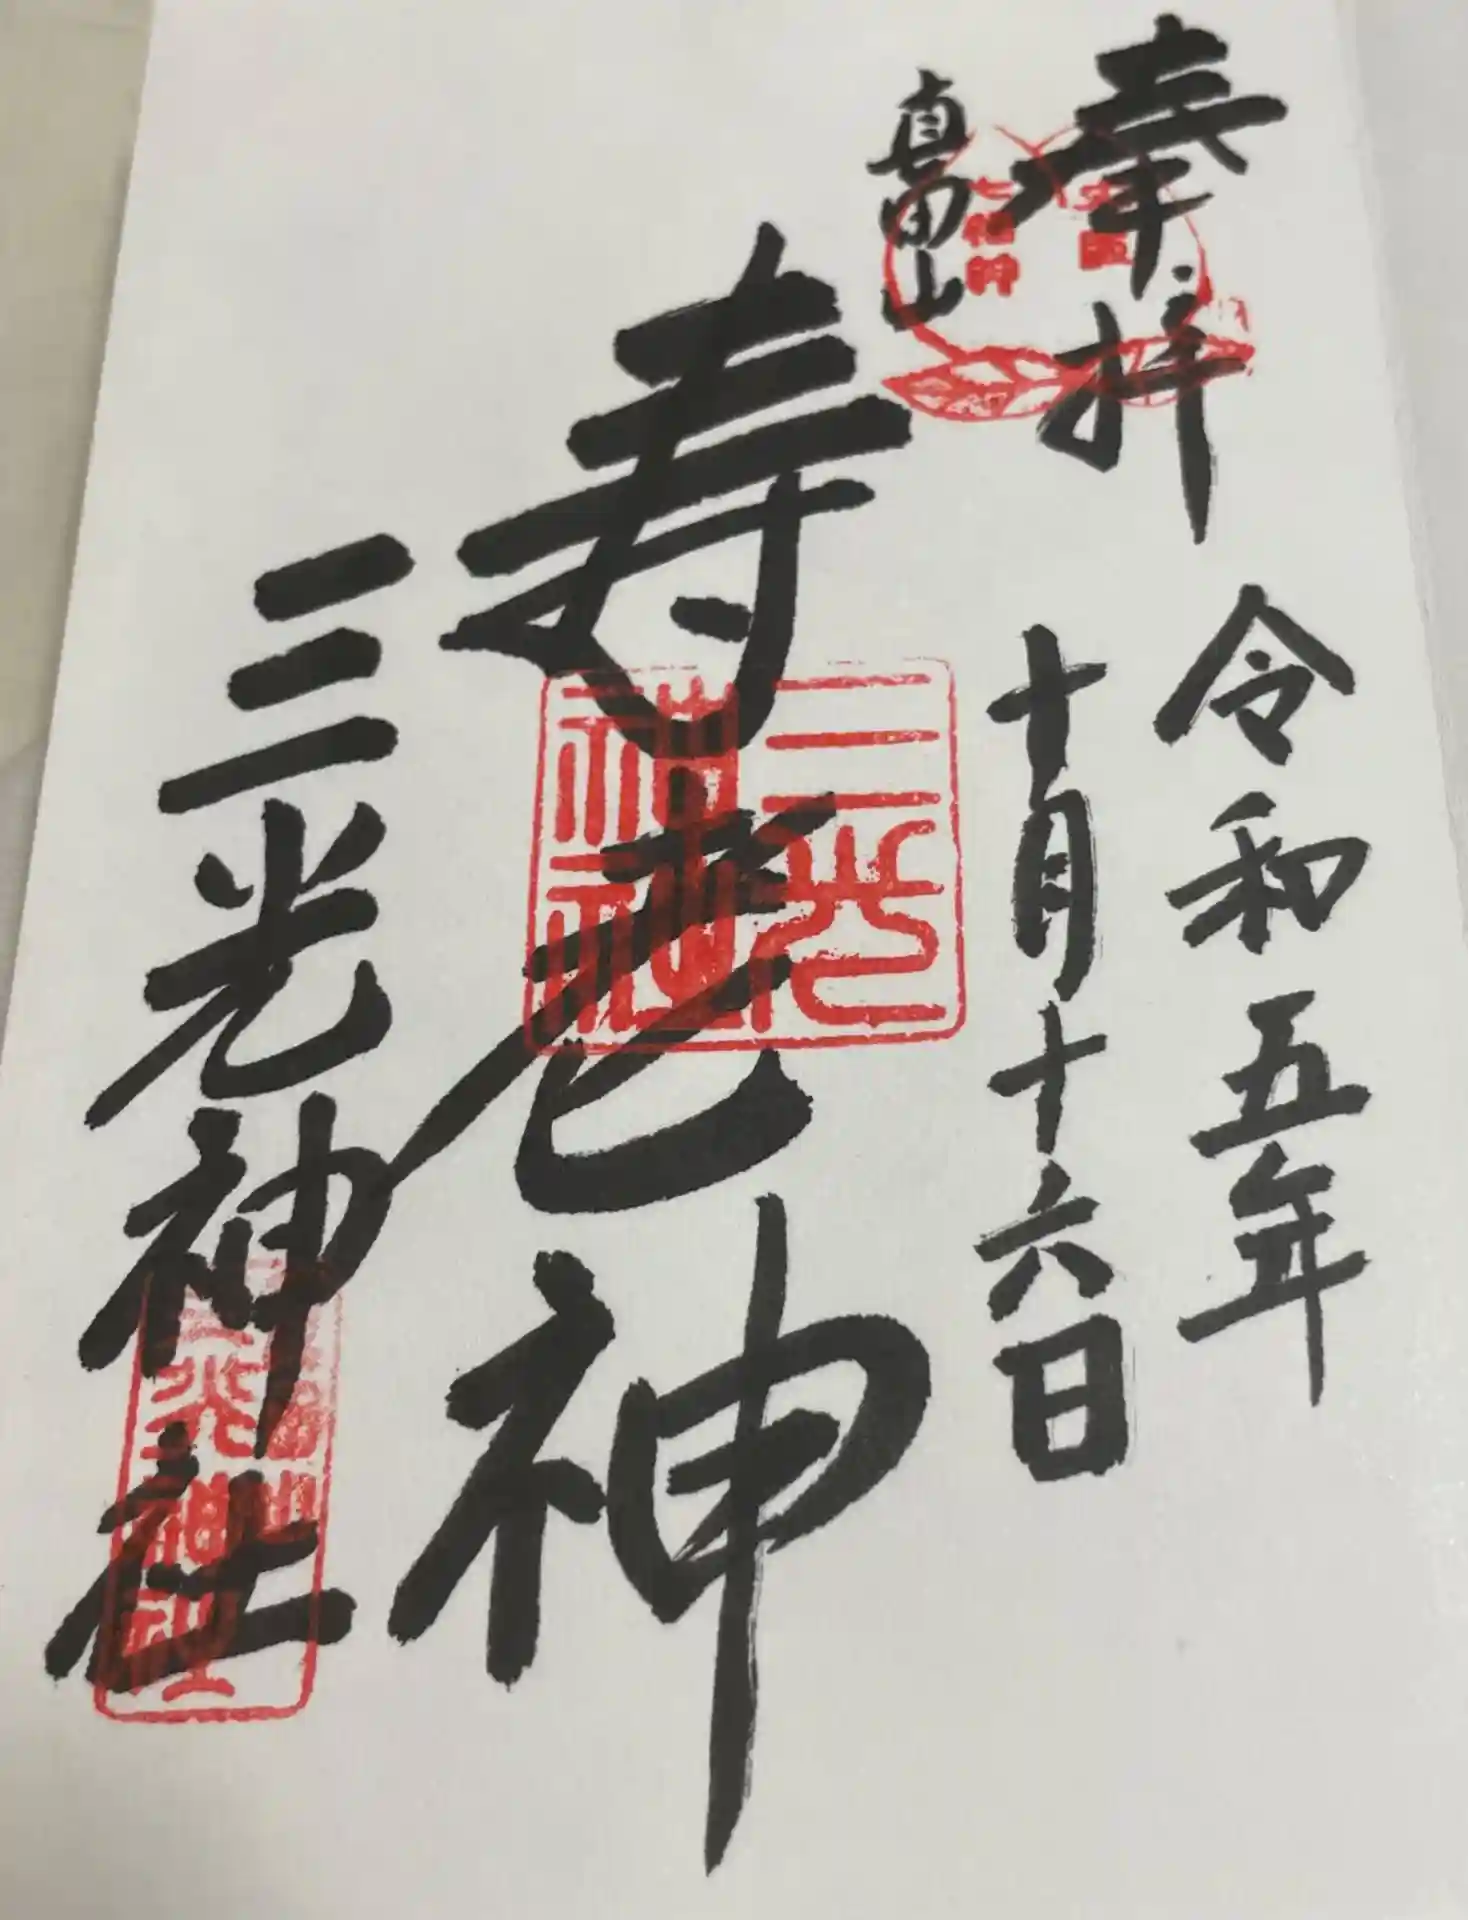 奉拝
真田山
令和五年
十月十六日
寿老神
三光神社
大阪
七福神
三光
神社